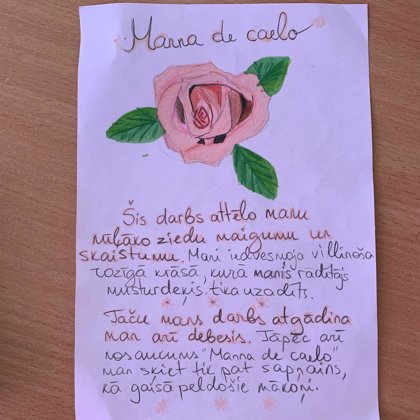 Manna de caelo
Šis darbs attēlo manu
mīļāko ziedu maigumu un
skaistumu. Mani iedvesmoja villinoša
rozīgā krāsā, kurā manis radītais
mūsturdeķis tika uzadīts.
Taču mans darbs atgādina
man arī debesis. Tāpēc arī
nosaucums "Manna de caelo"
man šķiet tik pat sapņains,
kā gaisā peldošie mākoņi.